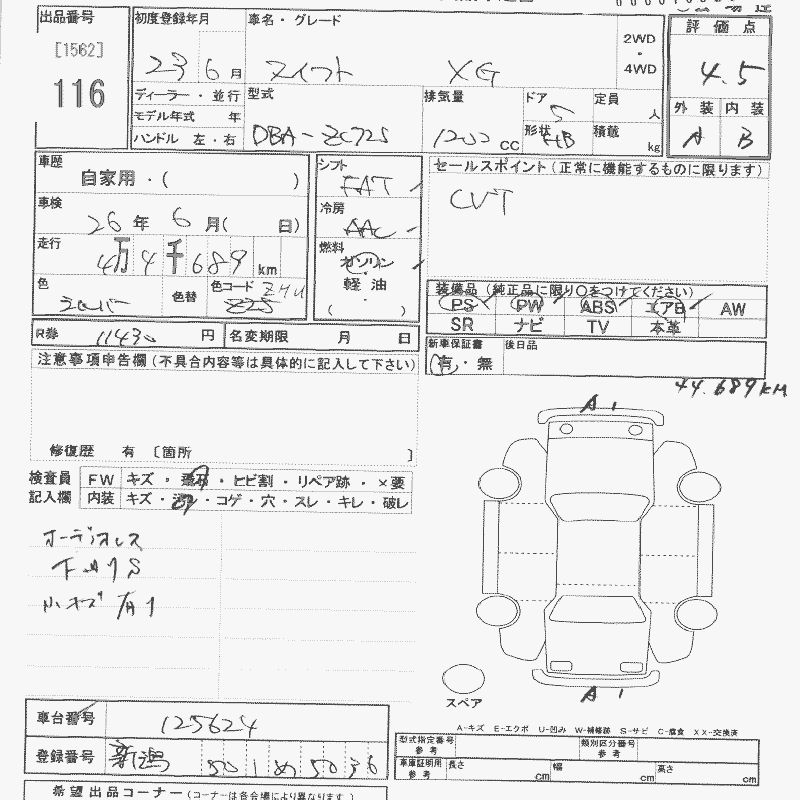 出品番号
[1562]
116
初度登録年月
23 6月
車名・グレード
スイフト XG
2WD
・
4WD
評価点
4.5
外装 内装
A B
ディーラー・並行
モデル年式 年
ハンドル 左・右
型式
DBA-ZC72S
排気量
1200 CC
ドア
5
形状 HB
定員 人
積載 kg
車歴
自家用・( )
車検
26年 6月( 日)
走行
4万4千689 km
色
シルバー
色替
色コード Z4U
Z2S
シフト
FAT
冷房
AAC
燃料
ガソリン
軽油
・
( )
セールスポイント(正常に機能するものに限ります)
CVT
装備品(純正品に限り〇をつけてください)
PS PW ABS エアB AW
SR ナビ TV 本革
R券 11430 円
名変期限 月 日
新車保証書
有・無
後日品
注意事項申告欄(不具合内容等は具体的に記入して下さい)
44.689KM
修復歴 有 〔箇所 〕
検査員
記入欄
FW キズ・飛石・ヒビ割・リペア跡・×要
内装 キズ・・コゲ・穴・スレ・キレ・破レ
オーディオレス
下廻りS
小キズ有り
A1
A1
スペア
A-キズ E-エクボ U-凹み W-補修跡 S-サビ C-腐食 XX-交換済
車台番号 125624
登録番号 新潟 50 1 め 5036
型式指定番号
参考
類別区分番号
参考
車庫証明用
参考
長さ cm 幅 cm 高さ cm
希望出品コーナー(コーナーは各会場により異なります。)